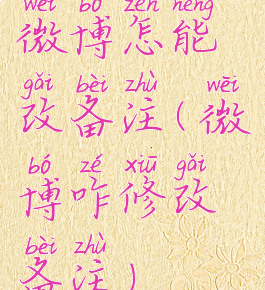 wēi bó zěn néng
微博怎能
gǎi bèi zhù ( wēi
改备注(微
bó zé xiū gǎi
博咋修改
bèi zhù
备注)